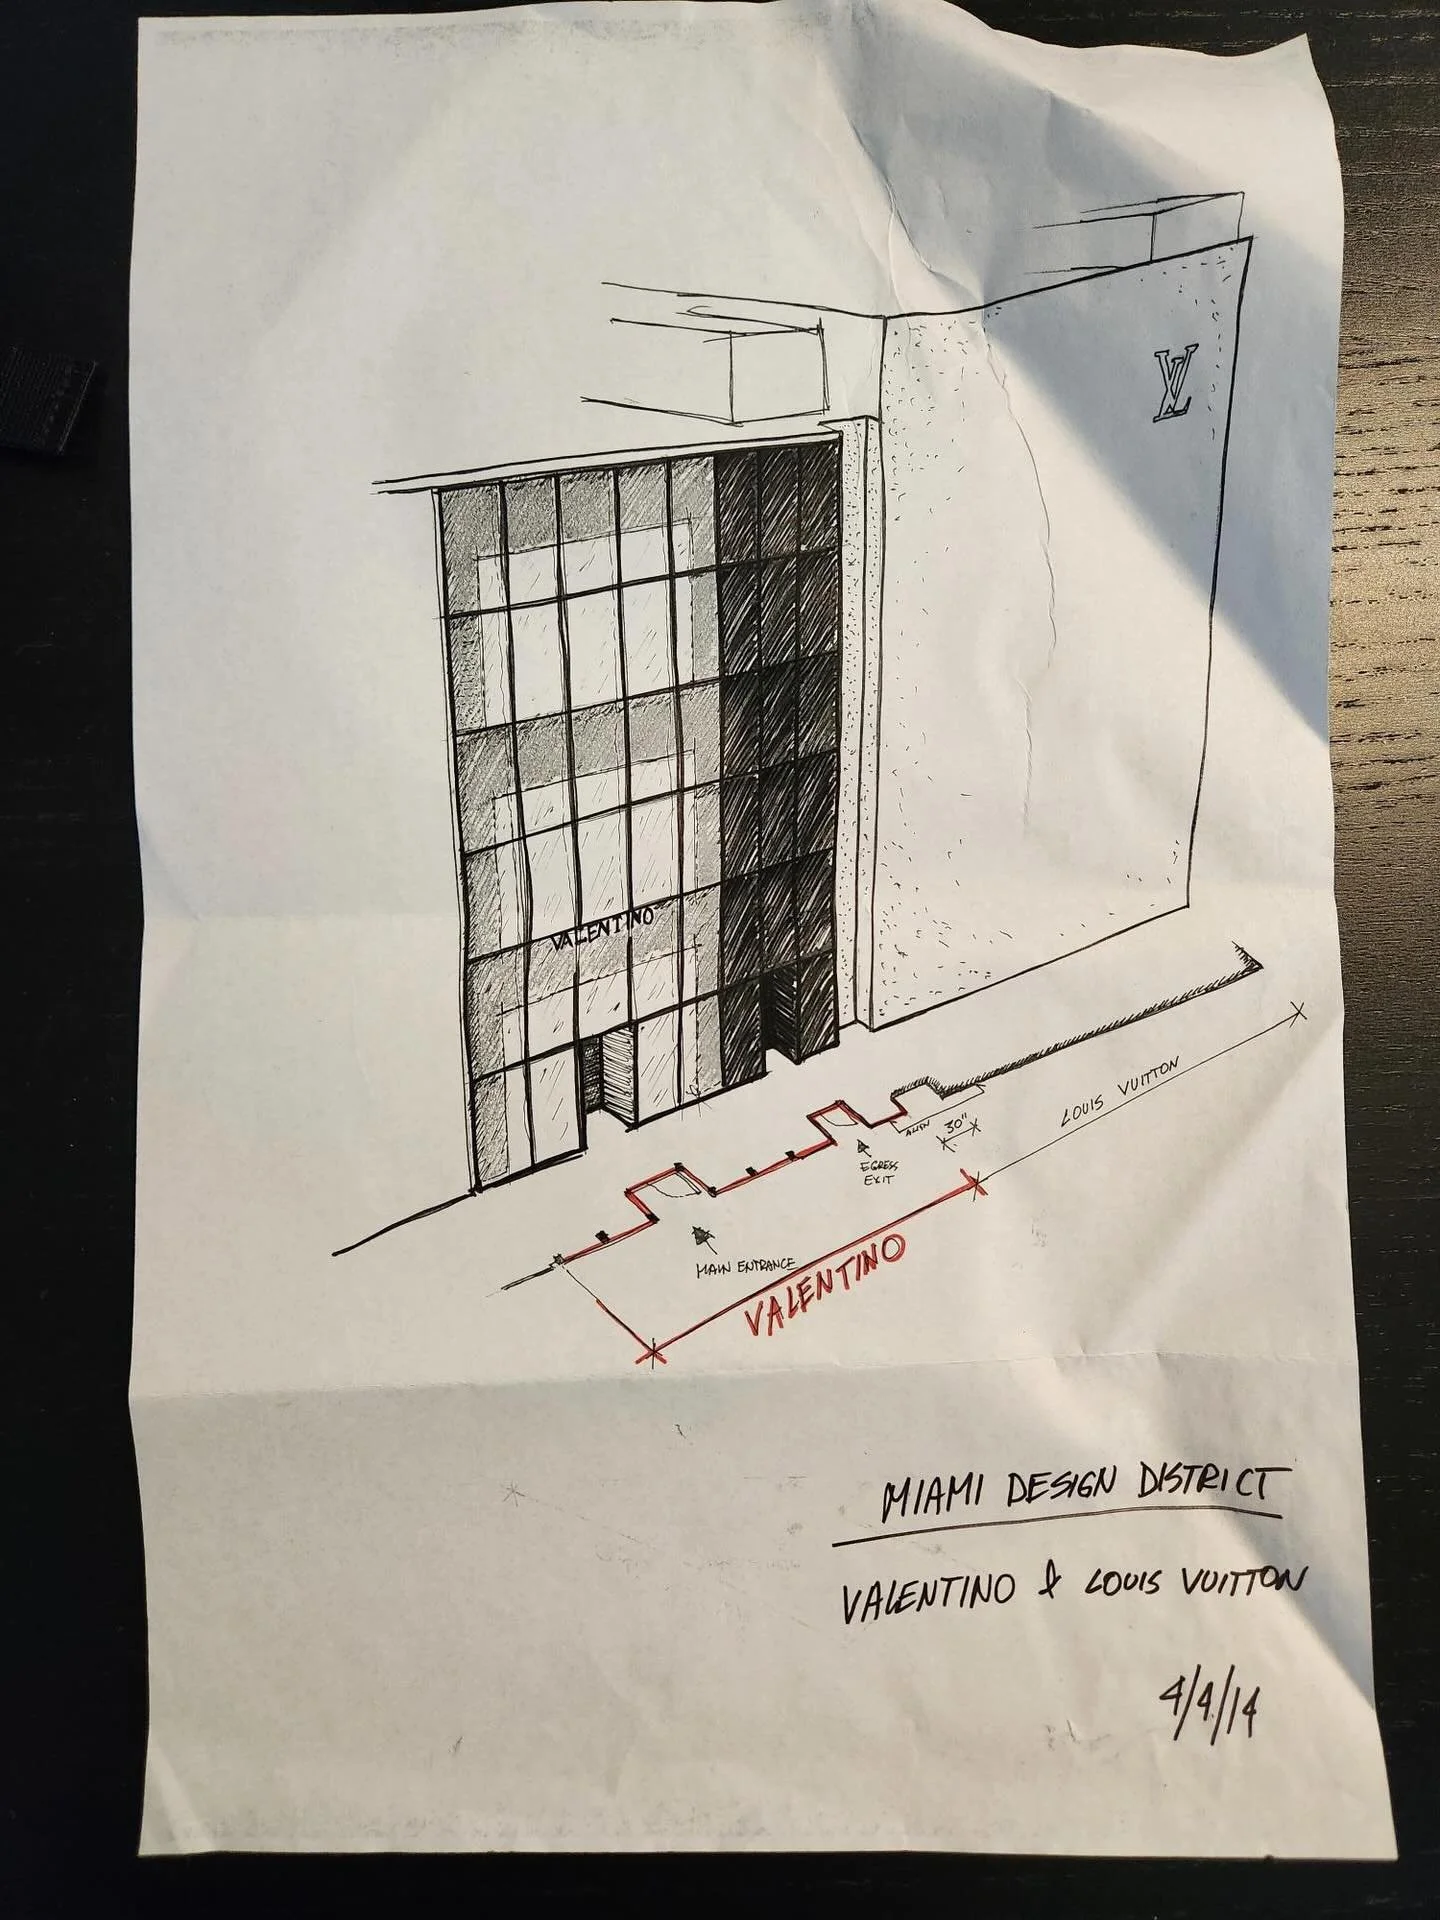 LV
VALENTINO
LOUIS VUITTON
ALIGN 30"
EGRESS
EXIT
MAIN ENTRANCE
VALENTINO
MIAMI DESIGN DISTRICT
VALENTINO & LOUIS VUITTON
4/4/14